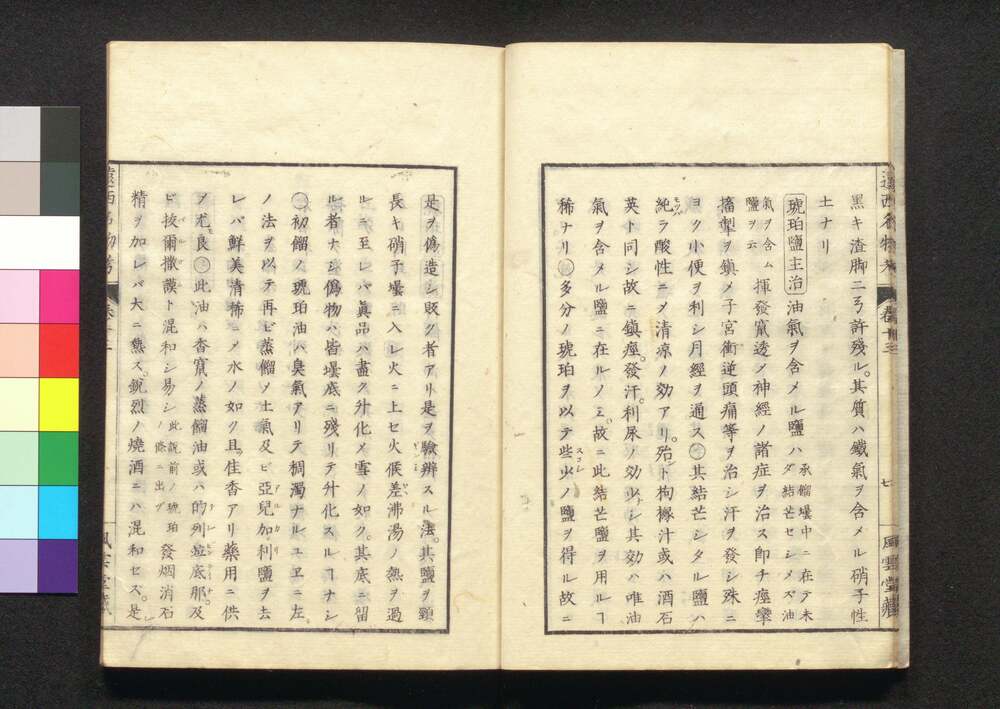 黒キ渣脚二弓許殘ル。其質ハ鐵氣ヲ含メル硝子性
土ナリ
琥珀鹽主治 油氣ヲ含メル鹽ハ 承餾壜中ニ在テ未ダ結芒セシメズ油氣ヲ含ム鹽ヲ云 揮發竄透ノ神經ノ諸症ヲ治ス卽チ痙攣
搐掣ヲ鎮メ子宮衝逆頭痛等ヲ治シ汗ヲ發シ殊ニ
ヨク小便ヲ利シ月經ヲ通ス 其結芒シタル鹽ハ
純ラ酸性ニメ清涼ノ効アリ。殆ド拘櫞汁或ハ酒石
英ト同シ故ニ鎮痙。發汗。利尿ノ効少ナシ其効ハ唯油
氣ヲ含メル鹽ニ在ルノミ。故ニ此結芒鹽ヲ用ルヿ
稀ナリ 多分ノ琥珀ヲ以テ些少ノ鹽ヲ得ル故ニ
遠西名物考 卷十三 七 風雲堂藏
是ヲ偽造シ欺ク者アリ是ヲ驗辨スル法。其鹽ヲ頸
長キ硝子壜ニ入レ火ニ上セ火候差沸湯ノ熱ヲ過
ルニ至レバ眞品ハ盡ク升化メ雪ノ如ク。其底ニ留
ル者ナシ僞物ハ皆壜底ニ殘リテ升化スルヿナシ
初餾ノ琥珀油ハ臭氣アリテ稠濁ナルユヱニ左
ノ法ヲ以テ再ビ蒸餾メ土氣及ビ亞兒加利鹽ヲ去
レバ鮮美清稀ニメ水ノ如ク且佳香アリ藥用ニ供
ノ尤良 此油ハ香竄ノ蒸餾油或ハ的列並底那及
ビ拔爾撒謨ト混和シ易シ 此説前ノ琥珀ノ條ニ出ヅ 發烟消石
精ヲ加レバ大ニ熱ス。鋭烈ノ燒酒ニハ混和セス。是
遠西名物考 卷十三 風雲堂藏